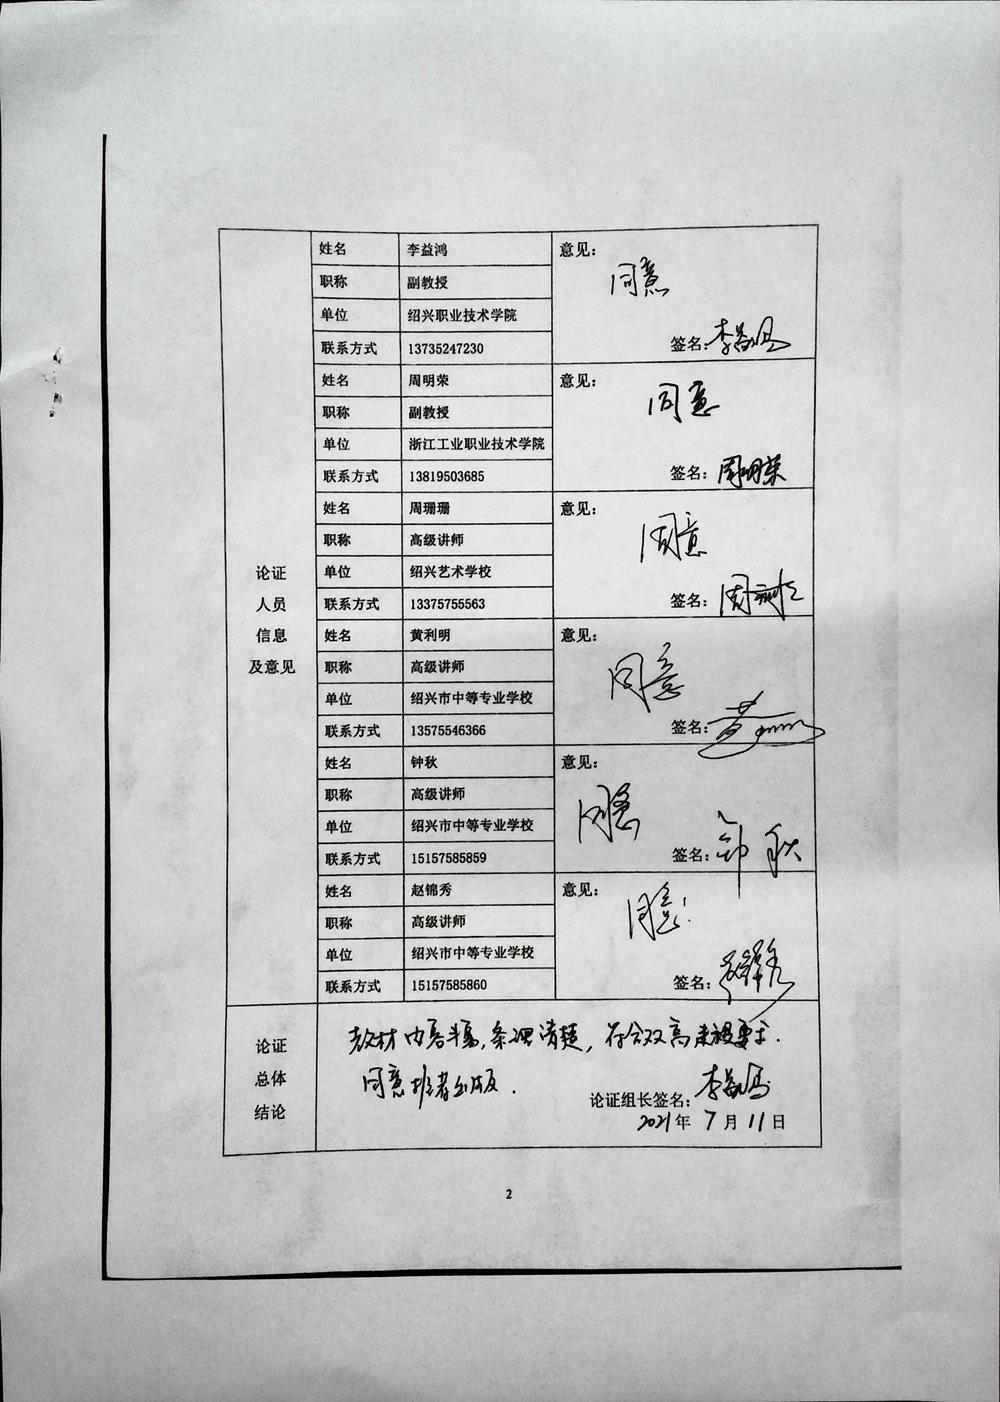 姓名 李益鸿 意见：
同意
职称 副教授
单位 绍兴职业技术学院
联系方式 13735247230 签名：李益鸿
姓名 周明荣 意见：
同意
职称 副教授
单位 浙江工业职业技术学院
联系方式 13819503685 签名：周明荣
姓名 周珊珊 意见：
同意
职称 高级讲师
单位 绍兴艺术学校
联系方式 13375755563 签名：周珊珊
论证
人员
信息
及意见
姓名 黄利明 意见：
同意
职称 高级讲师
单位 绍兴市中等专业学校
联系方式 13575546366 签名：黄
姓名 钟秋 意见：
同意
职称 高级讲师
单位 绍兴市中等专业学校
联系方式 15157585859 签名：钟秋
姓名 赵锦秀 意见：
同意
职称 高级讲师
单位 绍兴市中等专业学校
联系方式 15157585860 签名：赵锦秀
论证
总体
结论
教材内容丰富，条理清楚，符合双高建设要求.
同意推荐出版.
论证组长签名：李益鸿
2021年 7月 11日
2